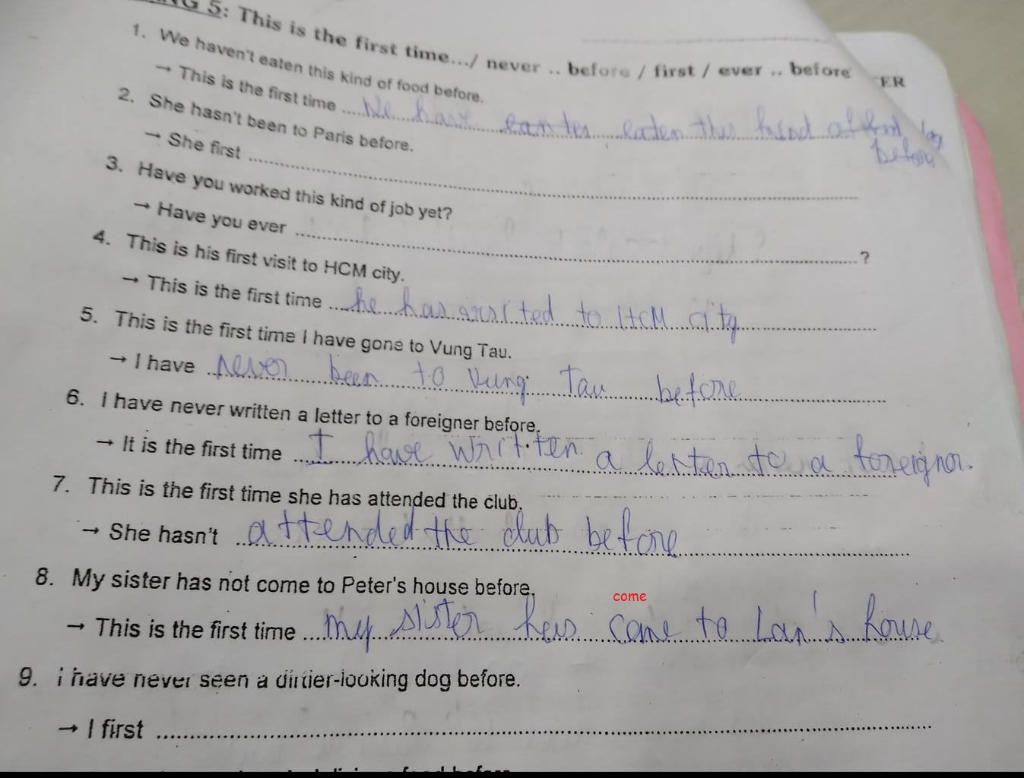 5: This is the first time.../ never .. before / first / ever .. before
ER
1. We haven't eaten this kind of food before.
→ This is the first time We have eaten this kind of food
before
2. She hasn't been to Paris before.
→ She first
3. Have you worked this kind of job yet?
→ Have you ever ?
4. This is his first visit to HCM city.
→ This is the first time he has to HCM city
5. This is the first time I have gone to Vung Tau.
→ I have never been to Vung Tau before
6. I have never written a letter to a foreigner before.
→ It is the first time I have written a letter to a foreigner.
7. This is the first time she has attended the club.
→ She hasn't attended the club before
8. My sister has not come to Peter's house before.
come
→ This is the first time my sister has came to Lan's house
9. i have never seen a dirtier-looking dog before.
→ I first